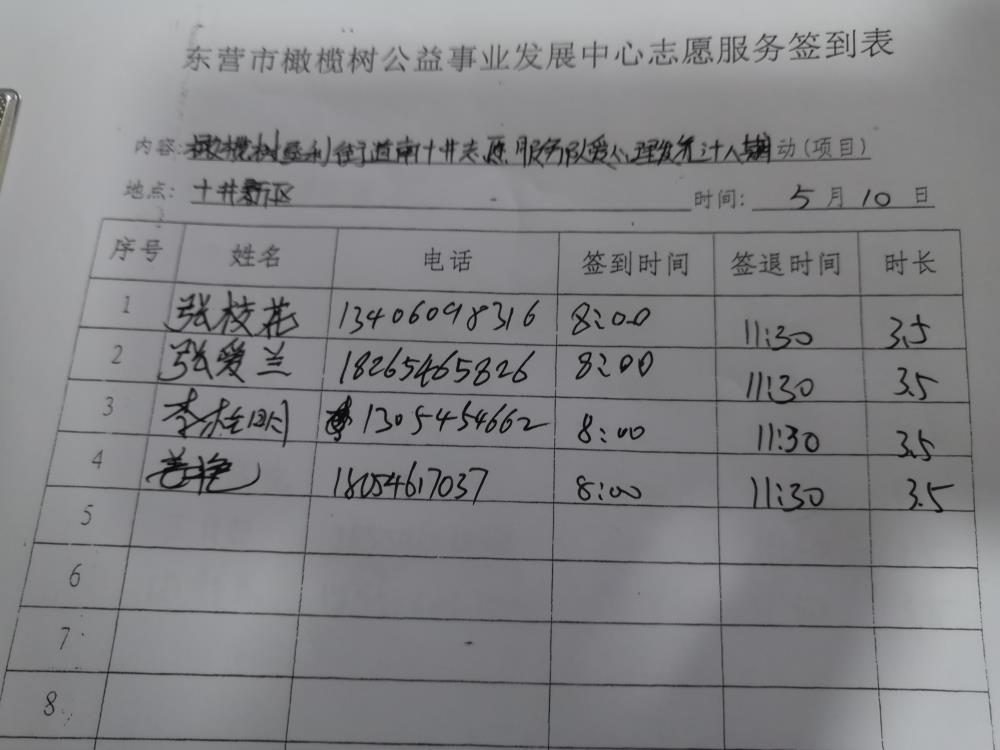 东营市橄榄树公益事业发展中心志愿服务签到表
内容:橄榄树胜利街道南十井志愿服务队爱心理发 动(项目)
地点: 十井新区 时间: 5 月 10 日
序号 姓名 电话 签到时间 签退时间 时长
1 张枝花 13406098316 8:00 11:30 3.5
2 张爱兰 18265465826 8:00 11:30 3.5
3 李 1305454662 8:00 11:30 3.5
4 18054617037 8:00 11:30 3.5
5
6
7
8